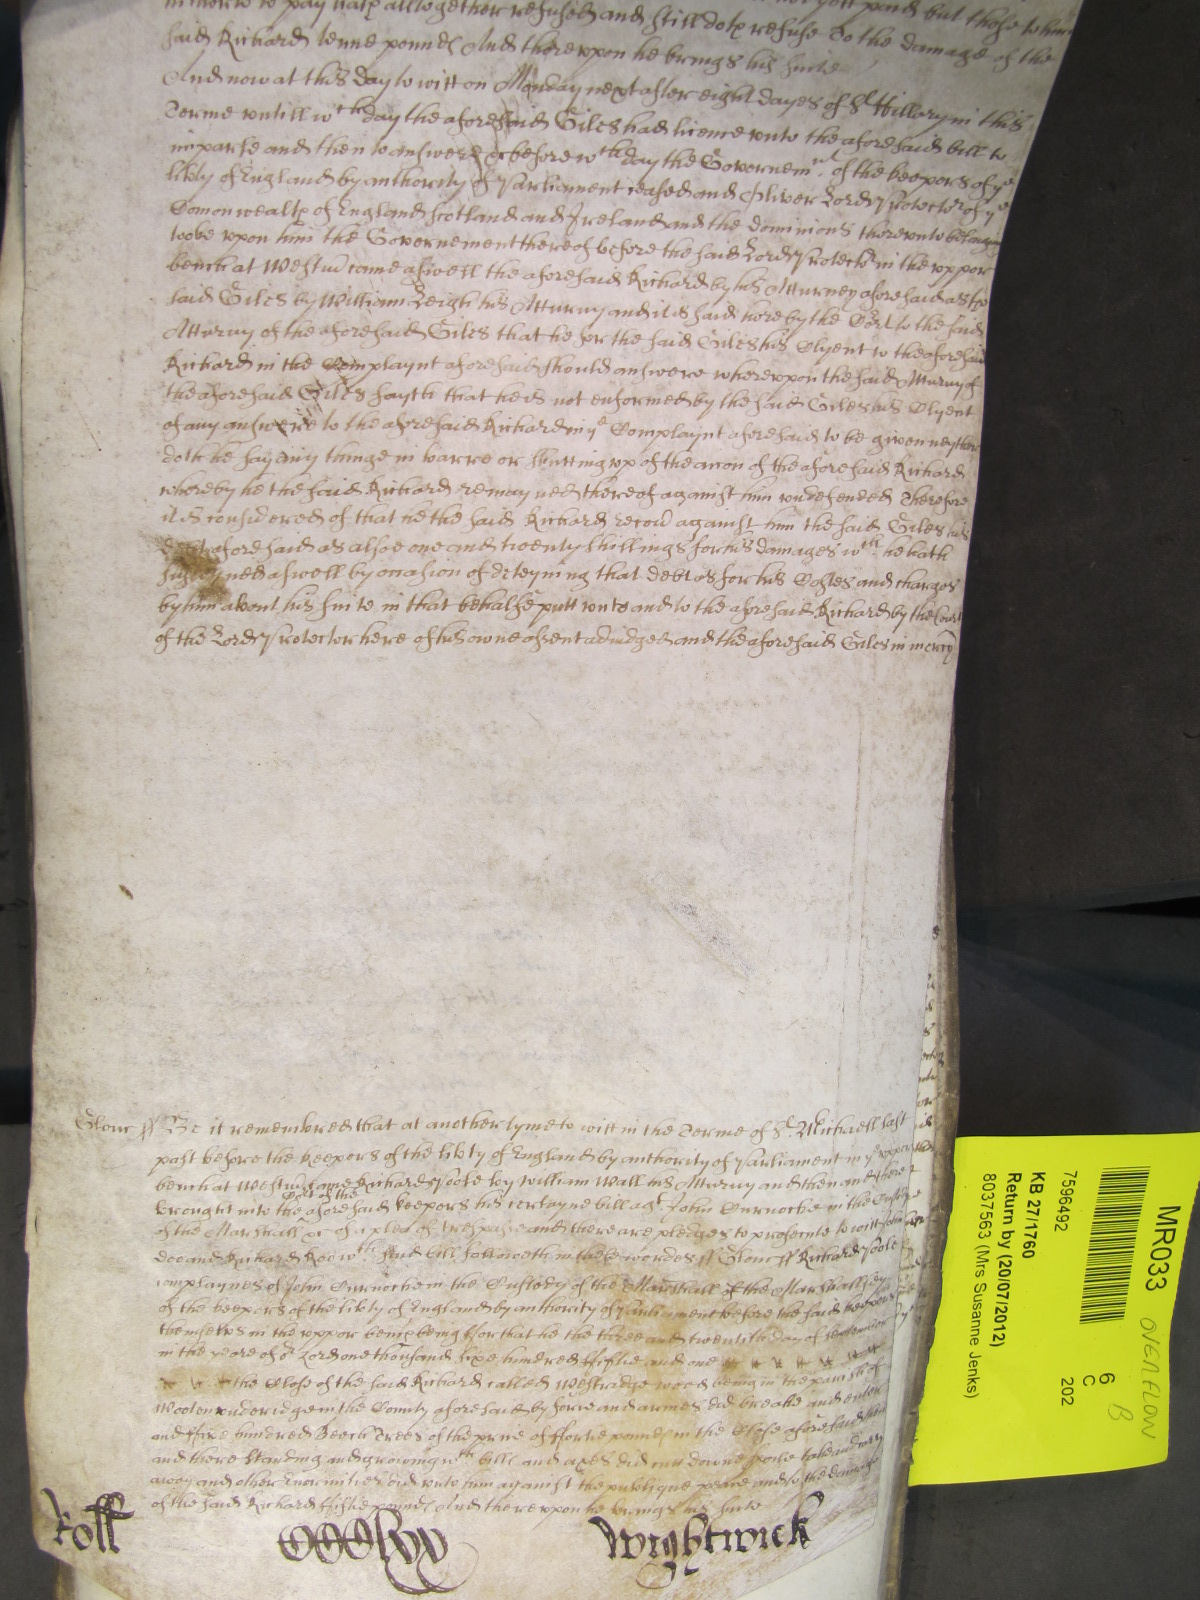 to pay hath alltogether refused and still doth refuse To the damage of the
said Richard tenne pounds And thereupon he brings his suite
And now at this day to witt on Monday next after eight dayes of St Hillary in this
Terme untill wch day the aforesaid Giles had licence unto the aforesaid bill to
imparle and then to answere &c before wch day the Governemt of the keepers of ye
libty of England by authority of Parliament ceased and Oliver Lord Protector of ye
Comonwealth of England Scotland and Ireland and the dominions thereunto belonging
tooke upon him the Governement thereof before the said Lord Protector in the upper
bench at Westmr came aswell the aforesaid Richard by his Atturney aforesaid as the
said Giles by William Leigh his Atturny and it is said here by the Cort to the said
Atturny of the aforesaid Giles that he for the said Giles his Clyent to the aforesaid
Richard in the Complaynt aforesaid should answere whereupon the said Atturny of
the aforesaid Giles sayth that he is not enformed by the said Giles his Clyent
of any answere to the aforesaid Richard in ye Complaynt aforesaid to be given neyther
doth he say any thinge in barre or shutting up of the accon of the aforesaid Richard
whereby he the said Richard remayned thereof against him undefended Therefore
it is considered of that he the said Richard recover against him the said Giles his
debt aforesaid as alsoe one and twenty shillings for his damages wch he hath
susteyned aswell by occasion of deteyning that debt as for his Costes and charges
by him about his suite in that behalfe putt unto and to the aforesaid Richard by the Court
of the Lord Protector here of his owne assent adiudged and the aforesaid Giles in mercy
Glouc ss Be it remembred that at another tyme to witt in the Terme of St Michaell last
past before the keepers of the libty of England by authority of Parliament in ye upper
bench at Westmr came Richard Poole by William Wall his Atturny and then and there
brought into the Cort of the aforesaid keepers his certayne bill agt John Curnocke in the Custody
of the Marshall &c of a plea of trespasse and there are pledges to prosecute to witt John
doe and Richard Roe wch said bill followeth in these wordes ss Glouc ss Richard Poole
complaynes of John Curnocke in the Custody of the Marshall of the Marshallsey
of the keepers of the libty of England by authority of Parliament before the said keepers
themselves in the upper bench being ffor that he the three and twentith day of September
in the yeare of or Lord one thousand sixe hundred ffiftie and one
the Close of the said Richard called Westridge wood being in the parish of
Wooten underidge in the County aforesaid by force and armes did breake and enter
and ffive hundred Beech Trees of the price of ffortie pounds in the Close aforesaid then
and there standing and growing wth bills and axes did cut downe spoile take and carry
away and other Enormities did unto him against the publique peace and to the damage
of the said Richard ffiftie pounds And thereupon he brings his suite
Roll
Wightwick
MR033
OVERFLOW
B
6
C
202
7596492
KB 27/1760
Return by (20/07/2012)
8037563 (Mrs Susanne Jenks)